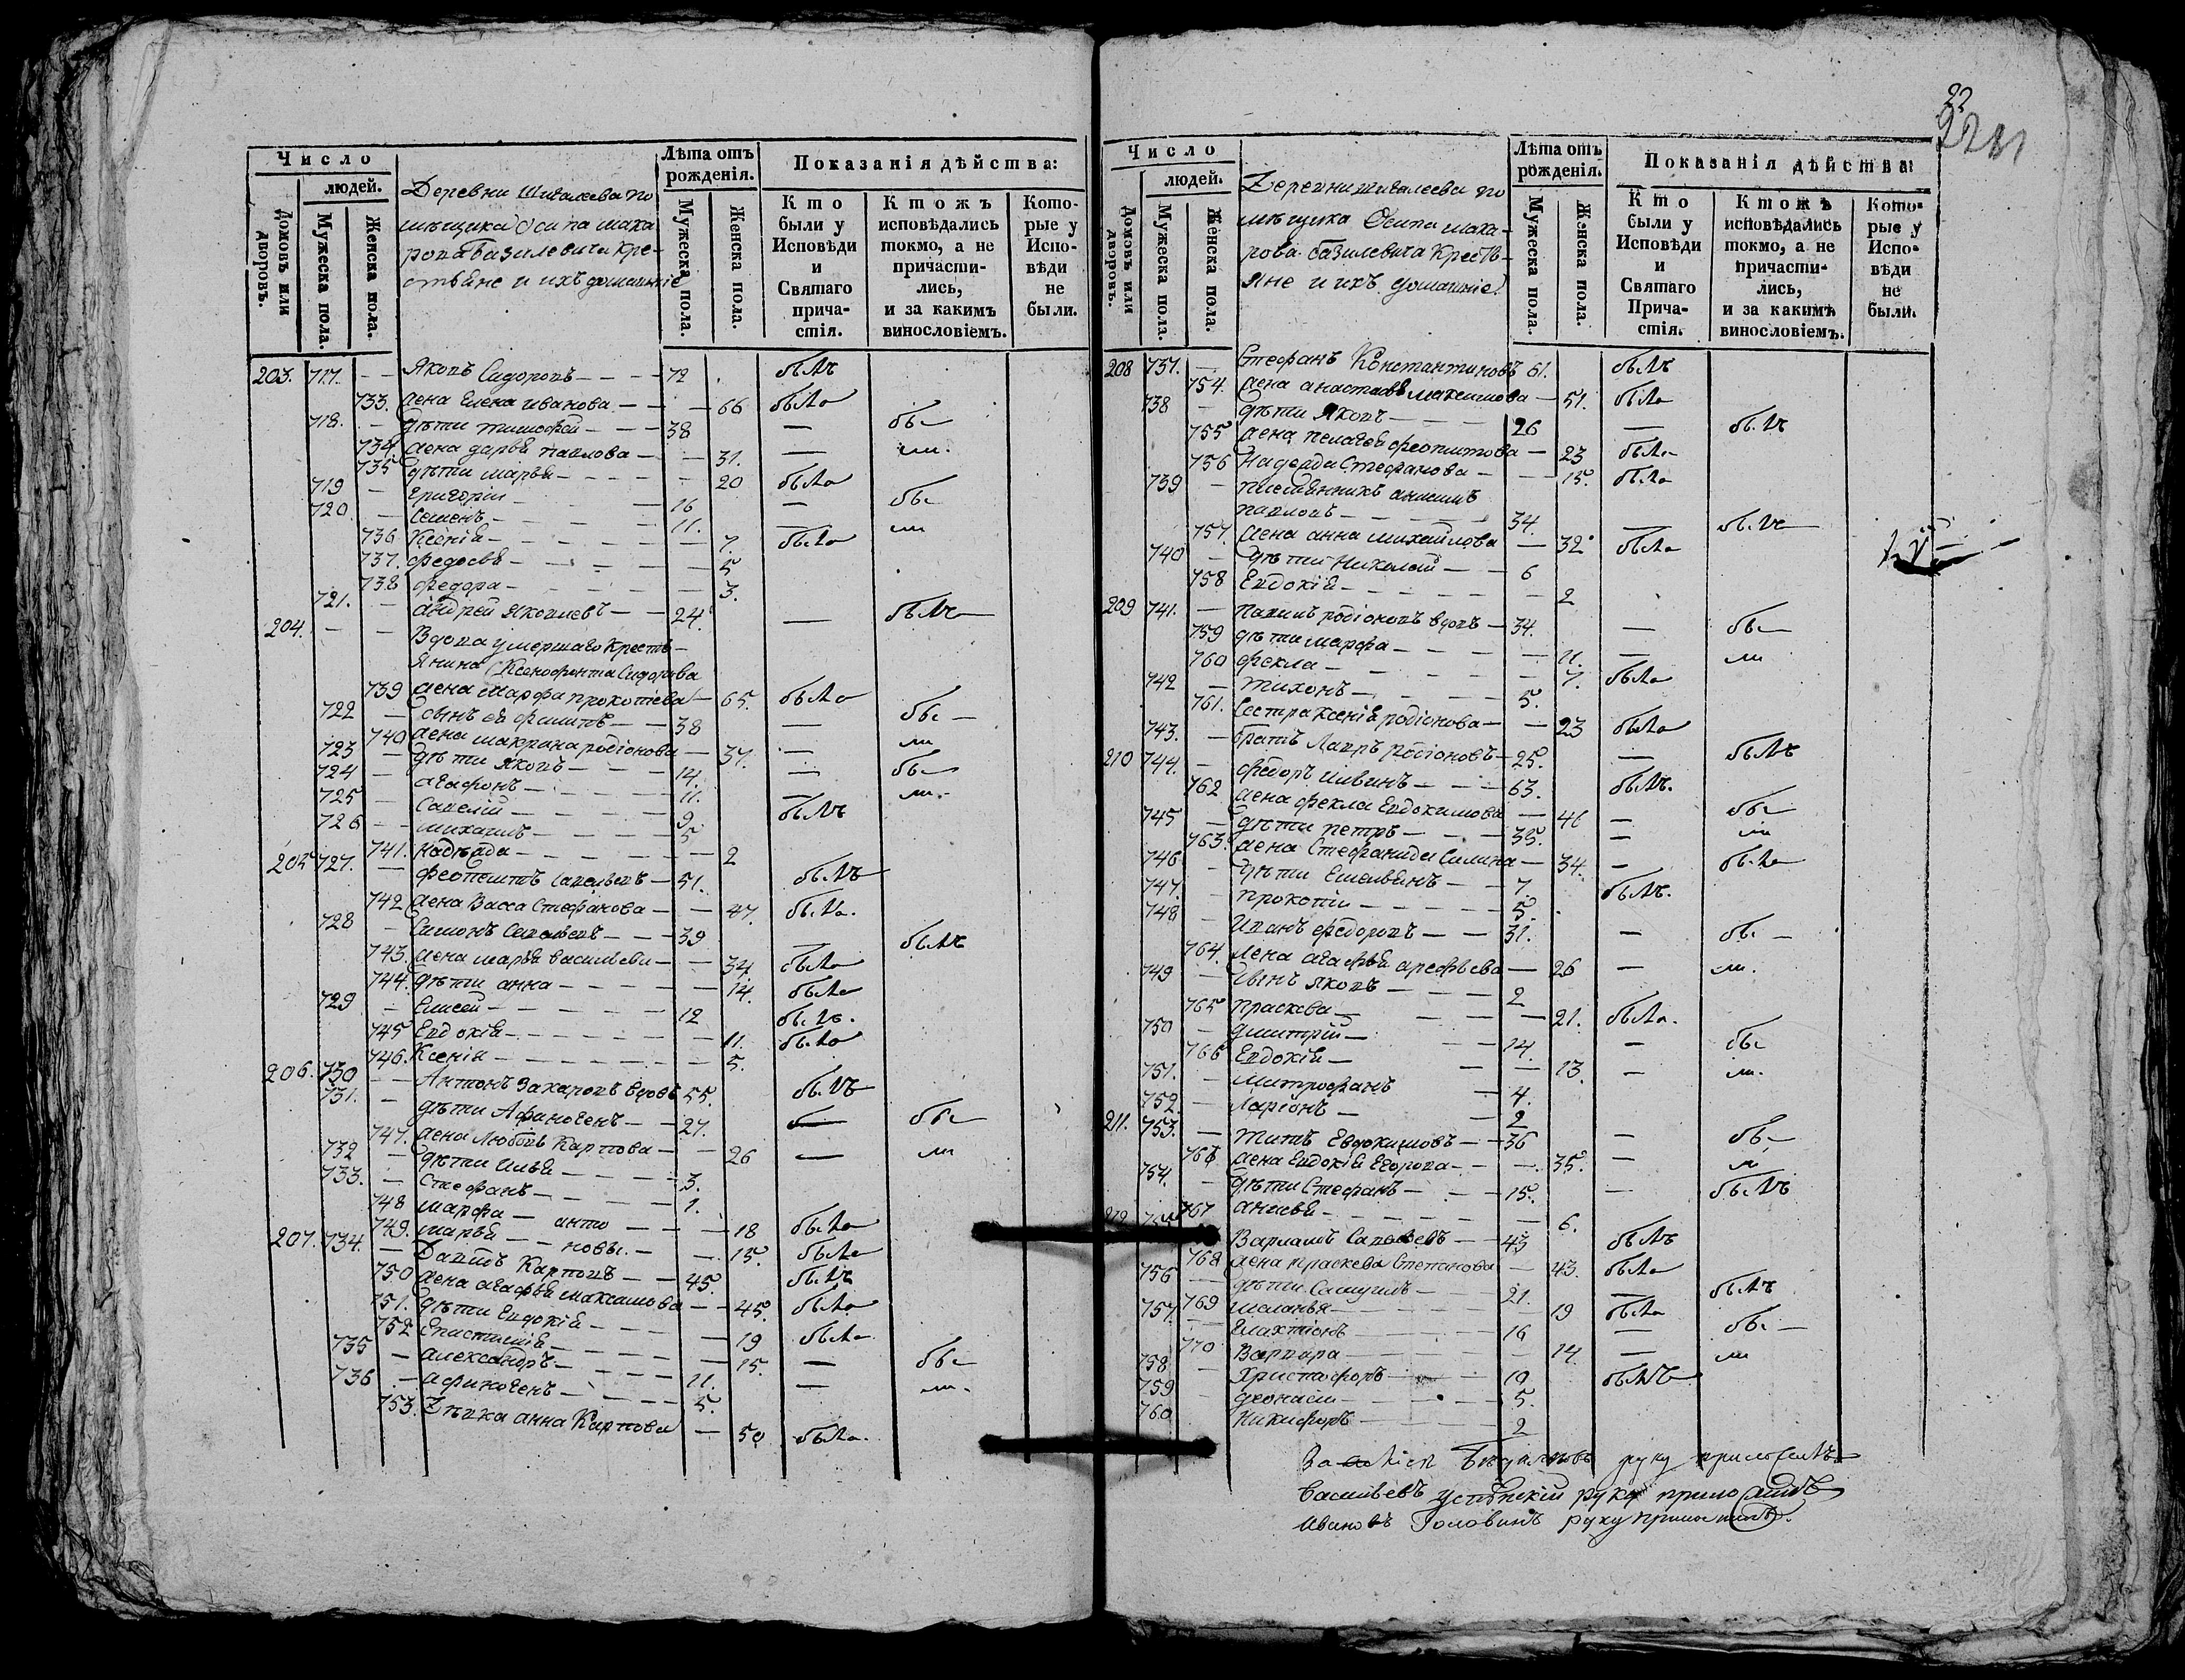 Число
людей.
Домовъ или дворовъ.
Мужеска пола.
Женска пола.
Деревни Шигалеева по
мѣщика Осипа мака
рова Базилевича кре-
стьяне и ихъ домашніе
Лѣта отъ рожденія.
Мужеска пола.
Женска пола.
Показанія дѣйства:
Кто были у Исповѣди и Святаго причастія.
Ктожъ исповѣдались токмо, а не причастились, и за какимъ винословіемъ.
Которые у Исповѣди не были.
203. 717. — — Яковъ Сидоровъ — — — 72 . былъ
733. жена Елена иванова — — — 66 была
718. — дѣти тимофей — — — 38 — бы
734 жена дарья павлова — — 31. — ли.
735 дѣти марья — — — — — 20 была
719 — Григорій — — — — 16 — бы
720. — Семенъ — — — — 11. — ли
736 Ксенія — — — — — 7. была
737. федосья — — — — — 5
738 федора — — — — — 3.
721. — андрей Яковлевъ — — 24. — былъ
204. — — Вдова умершаго Кресть-
янина Ксенофонта Сидорова
739 жена марфа прокопіева — 65. была
722 — сынъ ея филипъ — — 38 — бы —
740 жена макрина родіонова — 37. — ли
723 — дѣти яковъ — — — 14. — бы
724 — агафонъ — — — — 11. — ли.
725 — савелій — — — — 9. былъ
726 — — михаилъ — — — — 5
741. Надежда — — — — — 2
205 727. — феопемптъ савельевъ — 51. былъ
742 жена Васса Стефанова — — 47. была.
728 — Симонъ Савельевъ — — — 39 — былъ
743. жена марья васильева — — 34 была
744. дѣти анна — — — — — 14. была
729 — Елисей — — — — — 12 былъ.
745 Евдокія — — — — — 11. была
746. Ксенія — — — — — 5.
206. 730 — — Антонъ Захаровъ вдовъ 55. былъ
731. — дѣти Афиногенъ — — 27. — бы
747. жена Любовь Карпова — — 26 — ли
732 — дѣти илья — — — 3.
733. — Стефанъ — — — — 1.
748 марфа — анто — — — 18 была
749. марья — — новы. — — 15. была
207. 734. — Давидъ Карповъ — — 45. былъ
750 жена агафья максимова — — 45. была
751. дѣти Евдокія — — — — 19 была
752 Епистимія — — — — — 15. —
735 — александръ — — — — 11. — бы
736 — афиногенъ — — — — 5. — ли.
753. Дѣвка анна Карпова — 50 была.
22
Число
людей.
Домовъ или дворовъ.
Мужеска пола.
Женска пола.
Деревни шигалеева по
мѣщика Осипа мака-
рова базилевича Кресть-
яне и ихъ домашніе
Лѣта отъ рожденія.
Мужеска пола.
Женска пола.
Показанія дѣйства:
Кто были у Исповѣди и Святаго Причастія.
Ктожъ исповѣдались токмо, а не причастились, и за какимъ винословіемъ.
Которые у Исповѣди не были.
208 737. — Стефанъ Константиновъ 61. былъ
754. жена анастасья максимова — 51. была
738 — дѣти Яковъ — — — 26 — былъ
755 жена пелагея феопемптова — 23 была
756 Надежда Стефанова — — 15. была
739 — племянникъ анисимъ
павловъ — — — — 34. — былъ
757. жена анна михайлова — 32 была
740 — дѣти Николай — — 6
758 Евдокія — — — — — 2
209 741. — павилъ родіоновъ вдовъ — 34. — бы
759 дѣти марфа — — — — 11. — ли
760 фекла — — — — — 7. была
742 — тихонъ — — — — 5.
761. Сестра ксенія родіонова — — 23 была
743. — братъ Лавръ родіоновъ — 25. — былъ
210 744. — федоръ — — — 63. былъ.
762 жена фекла Евдокимова — 46 — бы
745 — дѣти петръ — — — 35. — ли
763. жена Стефанида Силина — 34. — была
746 — дѣти Емельянъ — — 7. былъ.
747. — прокопій — — — — 5.
748 — Иванъ федоровъ — — 31. — бы —
764. жена агафья арефьева — 26 — ли.
749 — сынъ яковъ — — — 2
765 праскева — — — — 21. была.
750 — дмитрій — — — 14. — бы
766 Евдокія — — — 13. — ли.
751. — митрофанъ — 4.
752. — Ларіонъ — — 2
211. 753. — титъ Евдокимовъ — — 36 — бы —
766 жена Евдокія Егорова — — — 35. — ли
754. — дѣти Стефанъ — — — 15. — былъ
767 анисья — — — — — 6.
212 Варламъ Савельевъ — — 43 былъ
768 жена праскева Степанова — 43. была
756 — дѣти Самуилъ — — 21. — былъ
769 маланья — — — — 19 была
757. — — — — 16 — бы —
770 Варвара — — — — 14. — ли
758 — Христофоръ — — — 10 былъ
759 — деонисій — — — 5.
760 Никифоръ — — — 2
руку приложилъ
Васильевъ Успѣнскій руку приложилъ
Ивановъ Головинъ руку приложилъ.